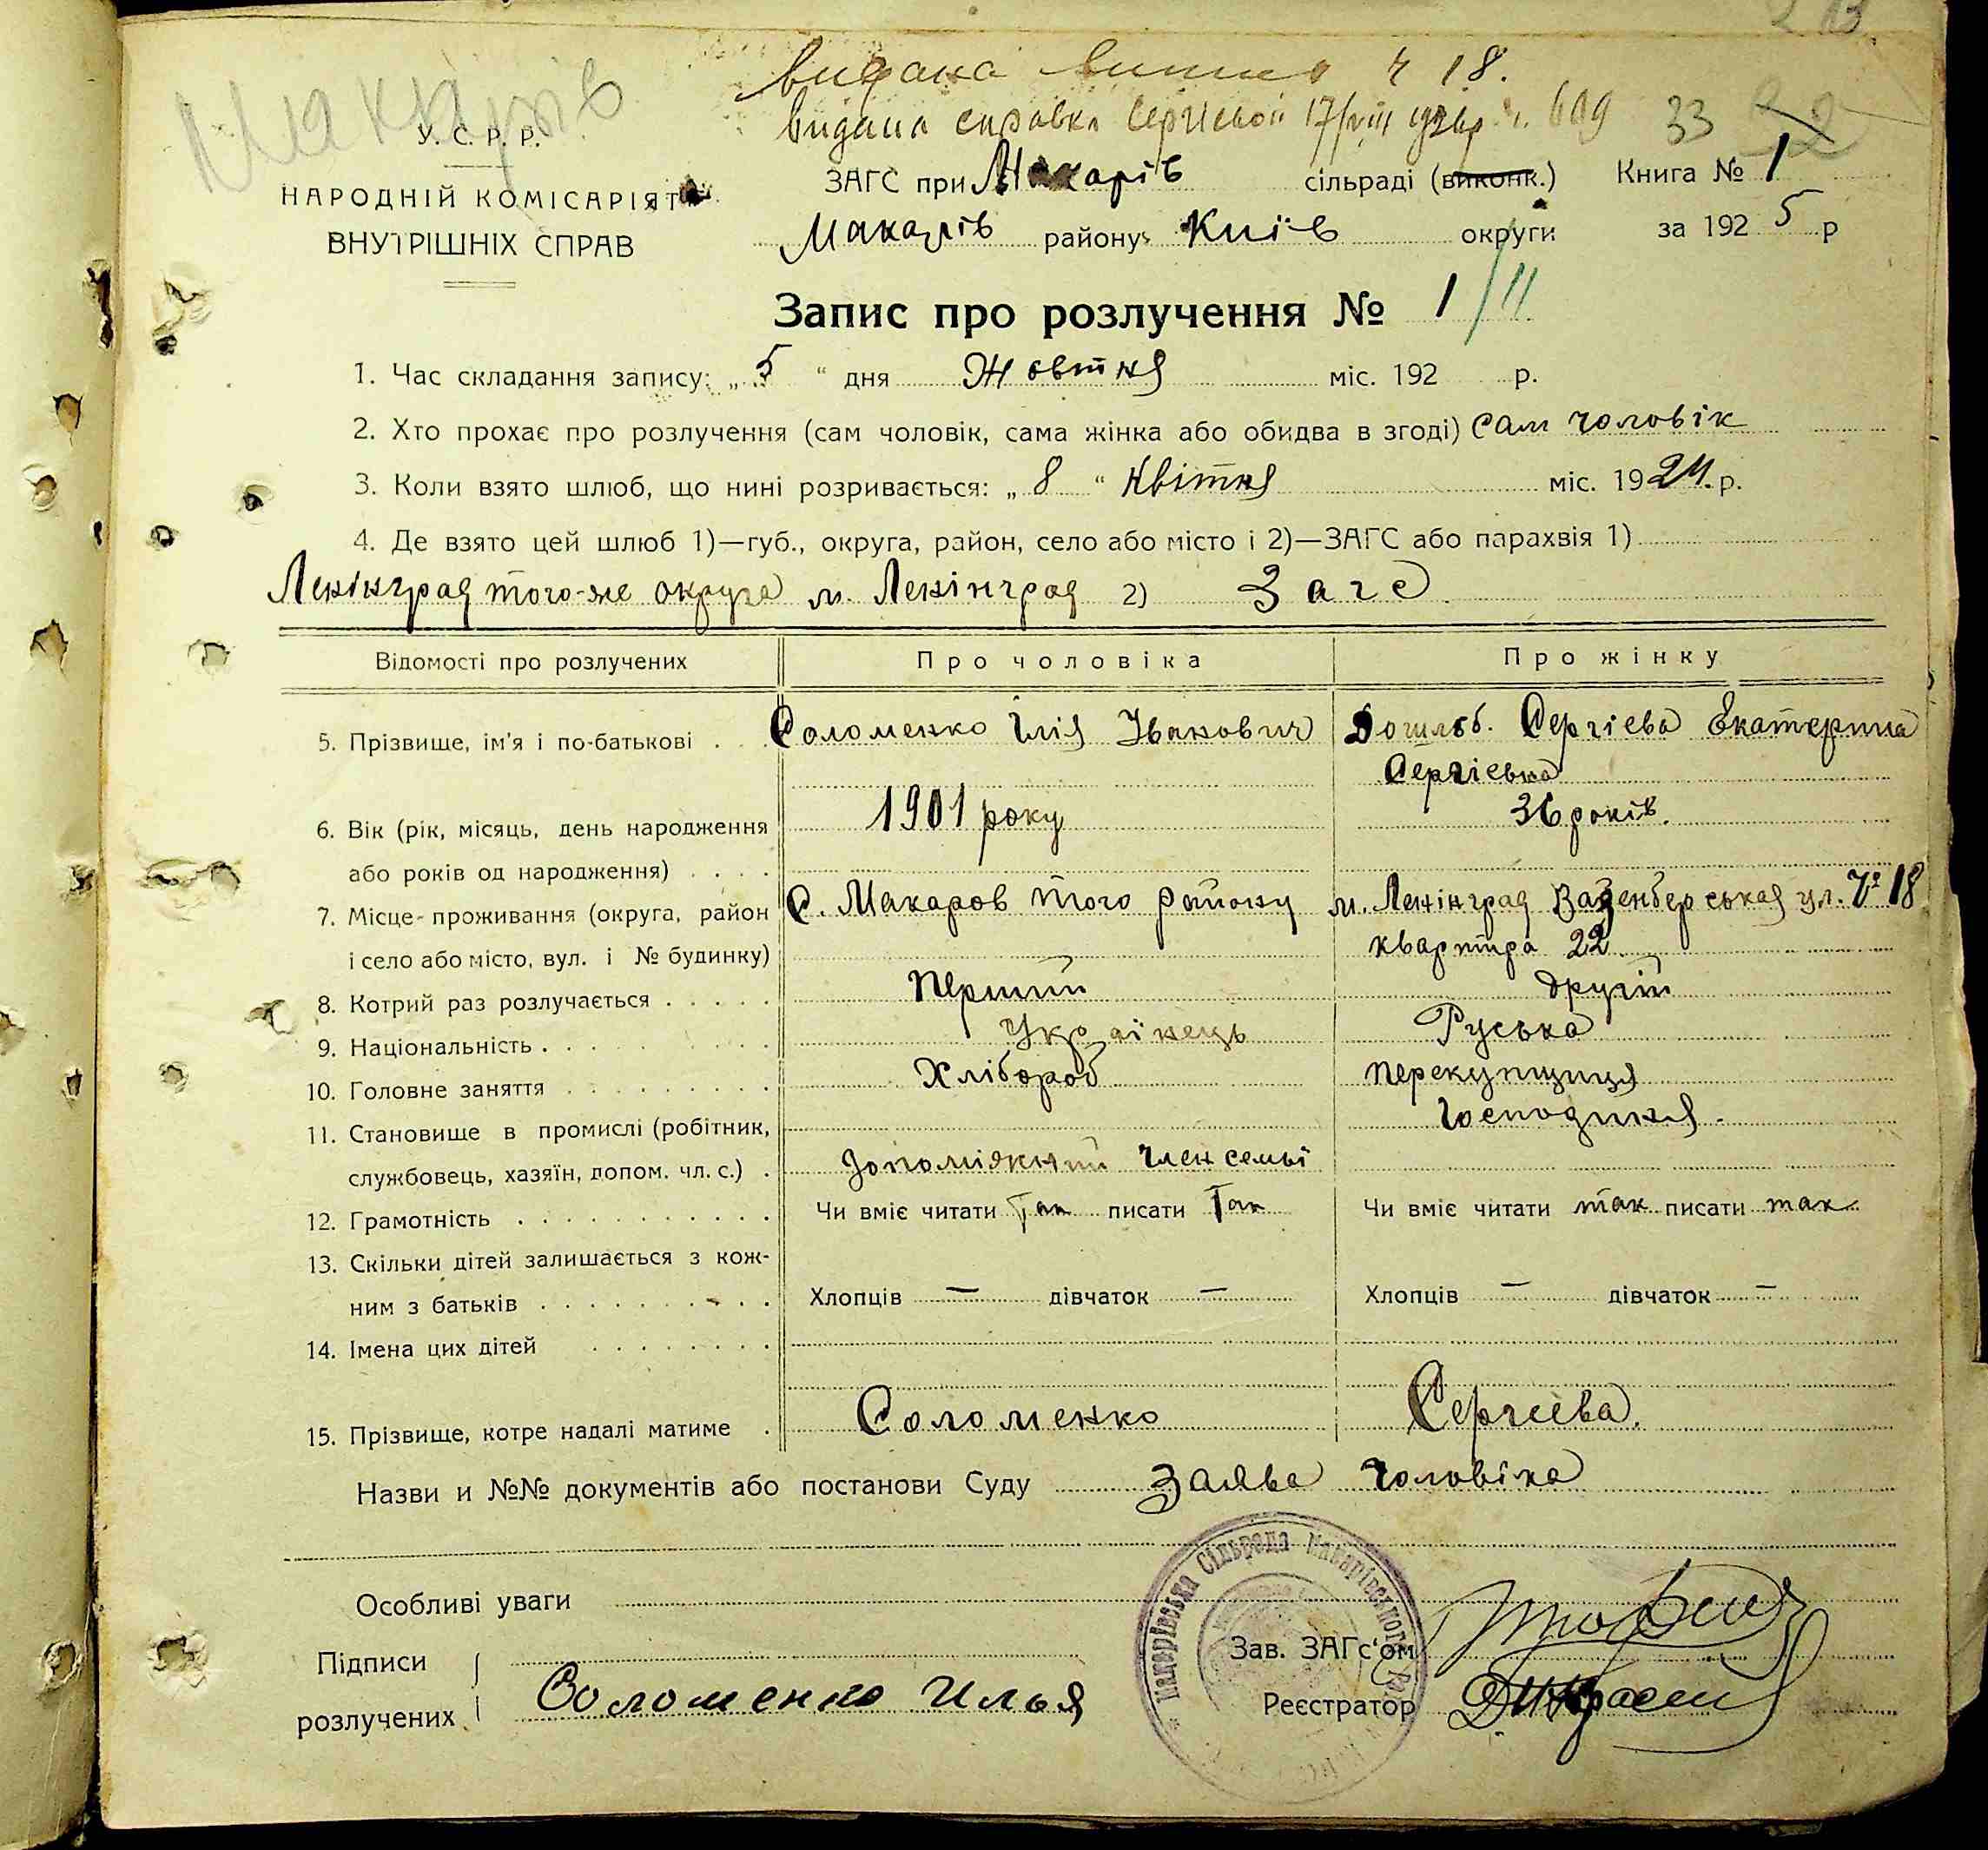 видана витяг ч 18.
видана справка Сергієвой 17/VIII ч. 609 33
Макарів
У. С. Р. Р.
НАРОДНІЙ КОМІСАРІЯТ
ВНУТРІШНІХ СПРАВ
ЗАГС при Макарів сільраді (виконк.) Книга № 1
Макарів району Київ округи за 192 5 р
Запис про розлучення № 1/11
1. Час складання запису: „ 5 “ дня Жовтня міс. 192 р.
2. Хто прохає про розлучення (сам чоловік, сама жінка або обидва в згоді) сам чоловік
3. Коли взято шлюб, що нині розривається: „ 8 “ Квітня міс. 1924. р.
4. Де взято цей шлюб 1)—губ., округа, район, село або місто і 2)—ЗАГС або парахвія 1)
Ленінград того-же округа м. Ленінград 2) Загс
Відомості про розлучених Про чоловіка Про жінку
5. Прізвище, ім'я і по-батькові Соломенко Ілія Іванович Дошлюб. Сергієва Екатерина
Сергієвна
6. Вік (рік, місяць, день народження 1901 року 36 років.
або років од народження)
7. Місце-проживання (округа, район С. Макаров того району м. Ленінград ул. № 18
і село або місто, вул. і № будинку) квартира 22
8. Котрий раз розлучається Перший другій
9. Національність Українець Руська
10. Головне заняття Хлібороб перекупщиця
11. Становище в промислі (робітник, Господиня.
службовець, хазяїн, допом. чл. с.) допоміжний член семьї
12. Грамотність Чи вміє читати Так писати Так Чи вміє читати так писати так
13. Скільки дітей залишається з кож-
ним з батьків Хлопців — дівчаток — Хлопців — дівчаток —
14. Імена цих дітей
15. Прізвище, котре надалі матиме Соломенко Сергієва.
Назви и №№ документів або постанови Суду Заява чоловіка
Особливі уваги
Макарівська Сільрада Макарівського
Підписи Зав. ЗАГс'ом
розлучених Соломенко Илья Реєстратор